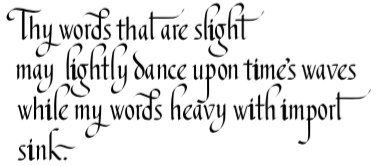 Thy words that are slight
may lightly dance upon time's waves
while my words heavy with import
sink.